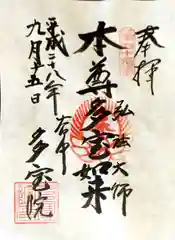 奉拝
弘法大師
本尊多宝如来
平成二十八年
九月十五日
多宝院